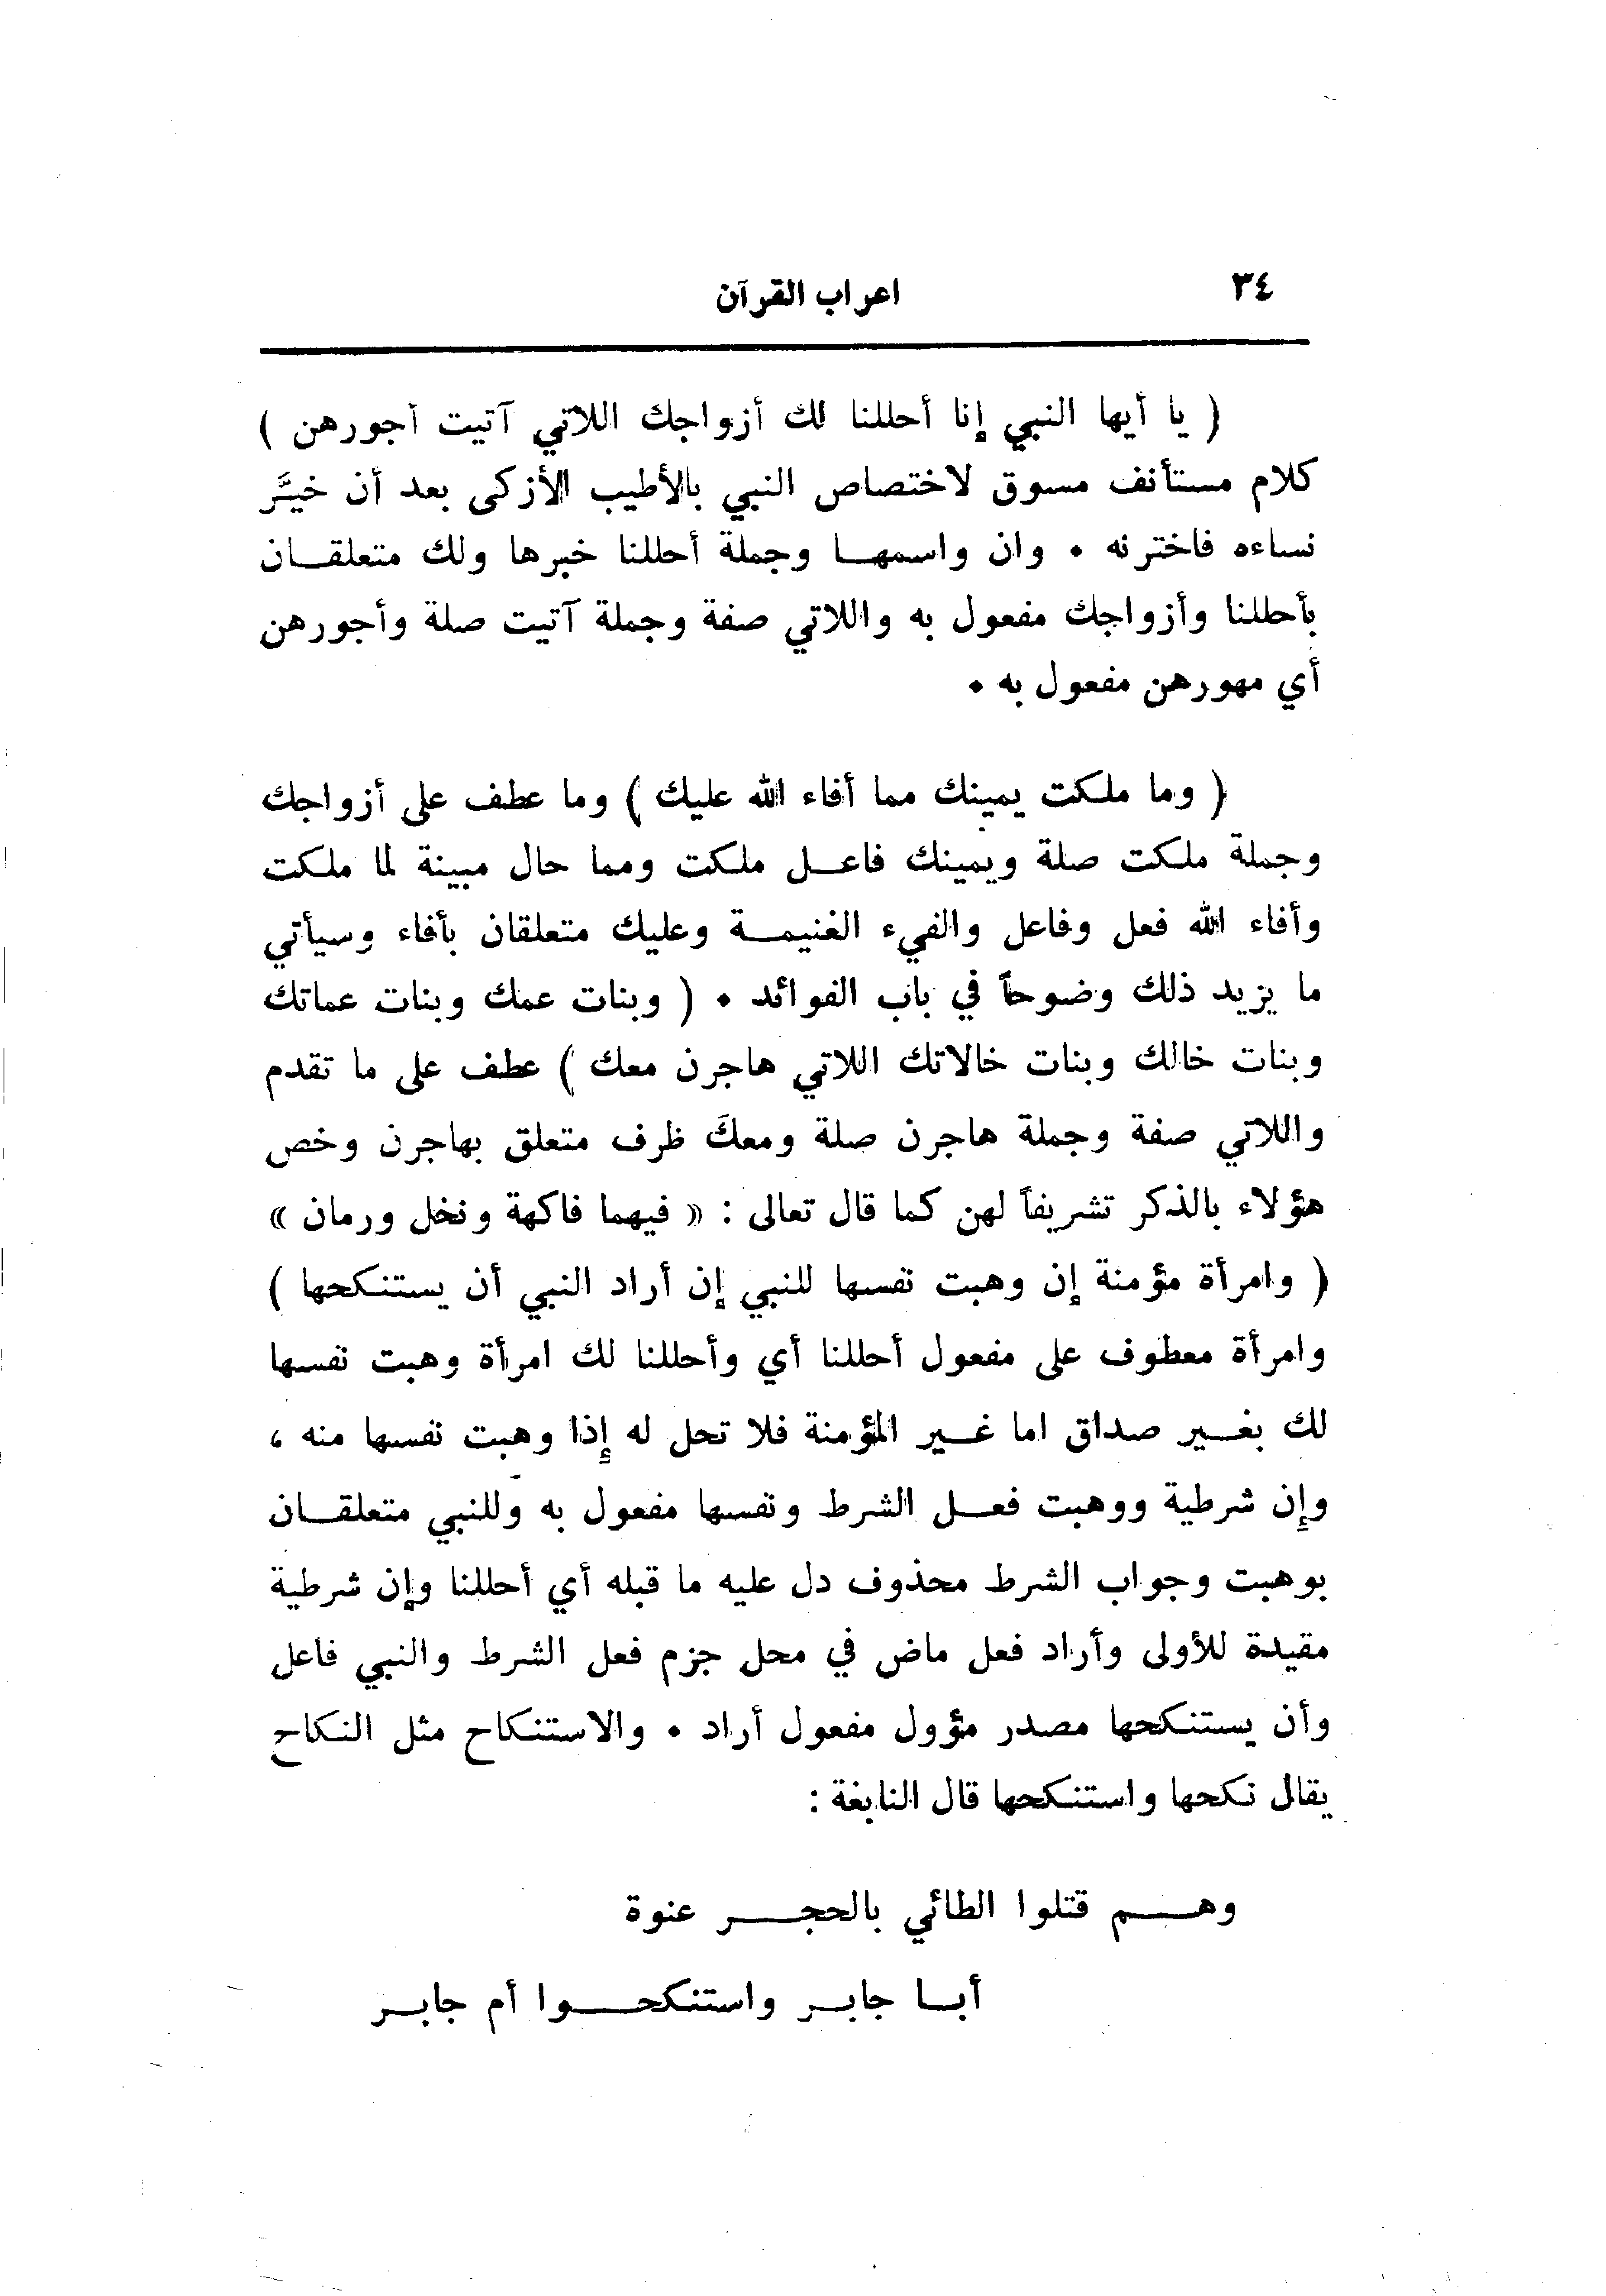 ٣٤
اعراب القرآن
( يا أيها النبي إنا أحللنا لك أزواجك اللاتي آتيت أجورهن )
كلام مستأنف مسوق لاختصاص النبي بالأطيب الأزكى بعد أن خيَّر
نساءه فاخترنه . وان واسمهـا وجملة أحللنا خبرها ولك متعلقـان
بأحللنا وأزواجك مفعول به واللاتي صفة وجملة آتيت صلة وأجورهن
أي مهورهن مفعول به .
( وما ملكت يمينك مما أفاء الله عليك ) وما عطف على أزواجك
وجملة ملكت صلة ويمينك فاعـل ملكت ومما حال مبينة لما ملكت
وأفاء الله فعل وفاعل والفيء الغنيمـة وعليك متعلقان بأفاء وسيأتي
ما يزيد ذلك وضوحاً في باب الفوائد . ( وبنات عمك وبنات عماتك
وبنات خالك وبنات خالاتك اللاتي هاجرن معك ) عطف على ما تقدم
واللاتي صفة وجملة هاجرن صلة ومعكَ ظرف متعلق بهاجرن وخص
هؤلاء بالذكر تشريفاً لهن كما قال تعالى : « فيهما فاكهة ونخل ورمان »
( وامرأة مؤمنة إن وهبت نفسها للنبي إن أراد النبي أن يستنكحها )
وامرأة معطوف على مفعول أحللنا أي وأحللنا لك امرأة وهبت نفسها
لك بغـير صداق اما غـير المؤمنة فلا تحل له إذا وهبت نفسها منه ،
وإن شرطية ووهبت فعـل الشرط ونفسها مفعول به وللنبي متعلقـان
بوهبت وجواب الشرط محذوف دل عليه ما قبله أي أحللنا وإن شرطية
مقيدة للأولى وأراد فعل ماض في محل جزم فعل الشرط والنبي فاعل
وأن يستنكحها مصدر مؤول مفعول أراد . والاستنكاح مثل النكاح
يقال نكحها واستنكحها قال النابغة :
وهـم قتلوا الطائي بالحجـر عنوة
أبـا جابـر واستنكحـوا أم جابـر